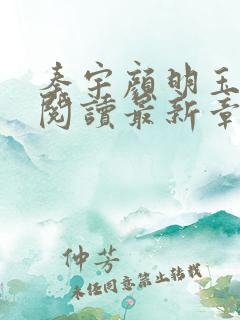 秦宇顏明玉
閱讀最新章
仲芳
未经同意禁止转载